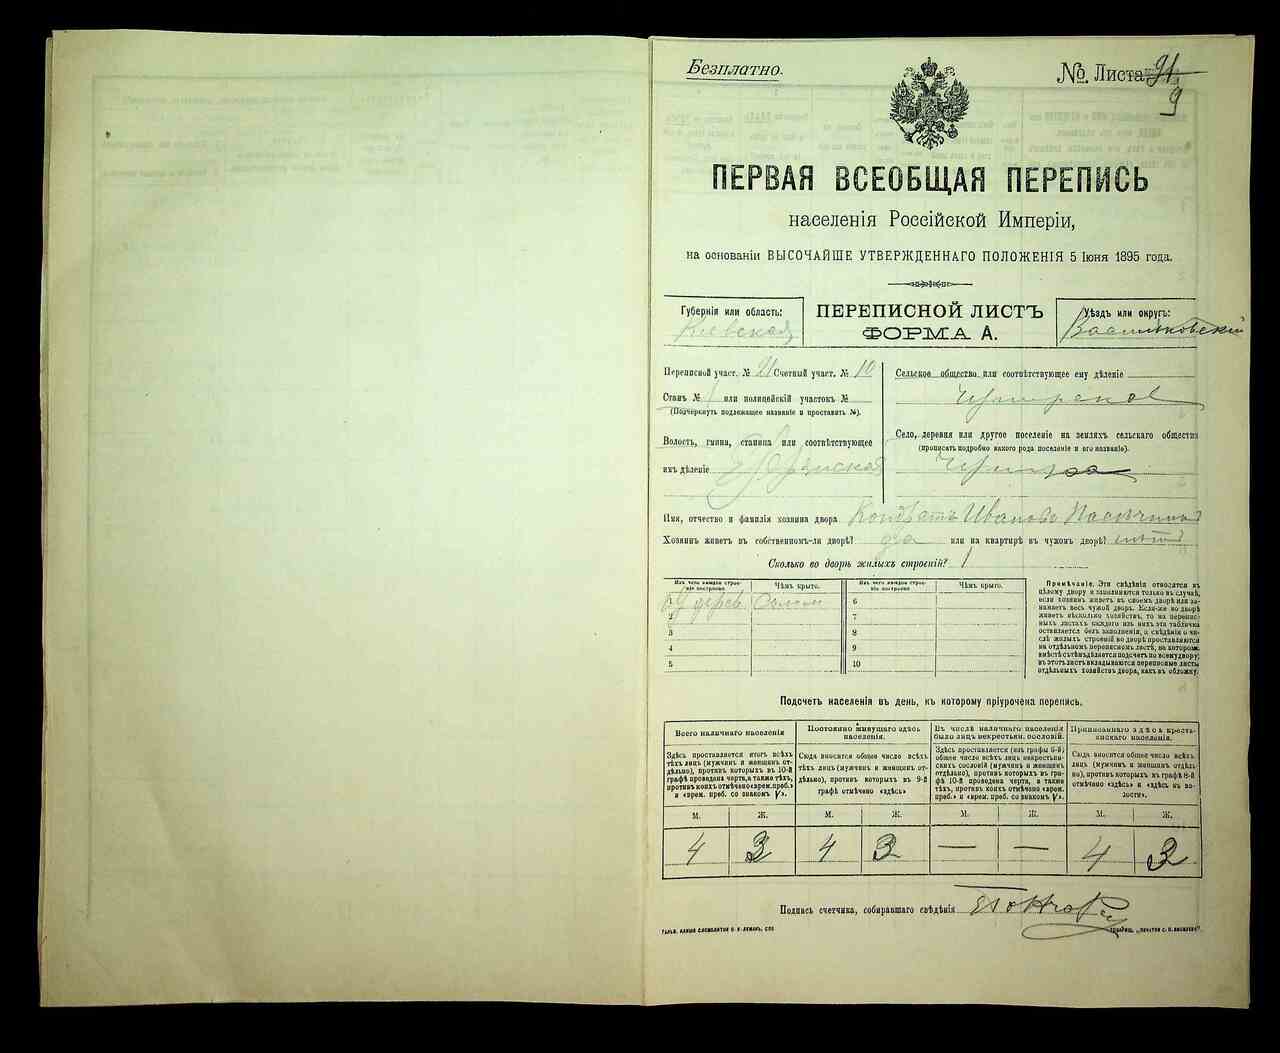 Безплатно.
№ Листа 91
9
ПЕРВАЯ ВСЕОБЩАЯ ПЕРЕПИСЬ
населенія Россійской Имперіи,
на основаніи ВЫСОЧАЙШЕ УТВЕРЖДЕННАГО ПОЛОЖЕНІЯ 5 Іюня 1895 года.
Губернія или область:
Кіевская
ПЕРЕПИСНОЙ ЛИСТЪ
ФОРМА А.
Уѣздъ или округъ:
Васильковскій
Переписной участ. № 21 Счетный участ. № 10
Станъ № 1 или полицейскій участокъ №
(Подчеркнуть подлежащее названіе и проставить №).
Волость, гмина, станица или соотвѣтствующее
ихъ дѣленіе
Сельское общество или соотвѣтствующее ему дѣленіе
Село, деревня или другое поселеніе на земляхъ сельскаго общества
(прописать подробно какого рода поселеніе и его названіе).
Имя, отчество и фамилія хозяина двора Кондратъ Ивановъ
Хозяинъ живетъ въ собственномъ-ли дворѣ? да или на квартирѣ въ чужомъ дворѣ?
Сколько во дворѣ жилыхъ строеній? 1
Изъ чего каждое строеніе построено
Чѣмъ крыто.
Изъ чего каждое строеніе построено
Чѣмъ крыто.
1 дерев. Солом
2
3
4
5
6
7
8
9
10
Примѣчаніе. Эти свѣдѣнія относятся къ
цѣлому двору и заполняются только въ случаѣ,
если хозяинъ живетъ въ своемъ дворѣ или занимаетъ
весь чужой дворъ. Если-же во дворѣ
живетъ нѣсколько хозяйствъ, то на переписныхъ
листахъ каждаго изъ нихъ эта табличка
оставляется безъ заполненія, а свѣдѣнія о числѣ
жилыхъ строеній во дворѣ проставляются
на отдѣльномъ переписномъ листѣ, на которомъ
вмѣстѣ съ тѣмъ дѣлается подсчетъ по всему двору;
въ этотъ листъ вкладываются переписные листы
отдѣльныхъ хозяйствъ двора, какъ въ обложку.
Подсчетъ населенія въ день, къ которому пріурочена перепись.
Всего наличнаго населенія
Здѣсь проставляется итогъ всѣхъ
тѣхъ лицъ (мужчинъ и женщинъ отдѣльно),
противъ которыхъ въ 10-й
графѣ проведена черта, а также тѣхъ,
противъ коихъ отмѣчено «врем. преб.»
и «врем. преб. со знакомъ V».
Постоянно живущаго здѣсь
населенія.
Сюда вносится общее число всѣхъ
тѣхъ лицъ (мужчинъ и женщинъ отдѣльно),
противъ которыхъ въ 9-й
графѣ отмѣчено «здѣсь»
Въ числѣ наличнаго населенія
было лицъ некрестьян. сословій.
Здѣсь проставляется (изъ графы 6-й)
общее число всѣхъ лицъ некрестьянскихъ
сословій (мужчинъ и женщинъ
отдѣльно), противъ которыхъ въ графѣ
10-й проведена черта, а также
тѣхъ, противъ коихъ отмѣчено «врем.
преб.» и «врем. преб. со знакомъ V».
Приписаннаго здѣсь крестьянскаго
населенія.
Сюда вносится общее число всѣхъ
лицъ (мужчинъ и женщинъ отдѣльно),
противъ которыхъ въ графѣ 8-й
отмѣчено «здѣсь» и «здѣсь въ волости».
М. Ж. М. Ж. М. Ж. М. Ж.
4 3 4 3 — — 4 3
Подпись счетчика, собиравшаго свѣдѣнія